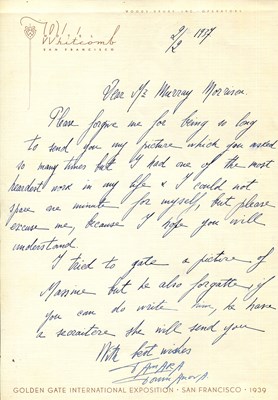 WOODS-DRURY INC. OPERATORS
Hotel Whitcomb
SAN FRANCISCO
2/2 1937
Dear Mr Murray Morrison
Please forgive me for being so long
to send you my picture which you asked
so many times but I had one of the most
heardest word in my life & I could not
spare one minute for myself, but please
excuse me, because I hope you will
understand.
I tried to gate a picture of
Massine but he also forgotten, if
you can do write him, he has
a secreitere she will send you
With best wishes
TAMARA
GOLDEN GATE INTERNATIONAL EXPOSITION • SAN FRANCISCO • 1939